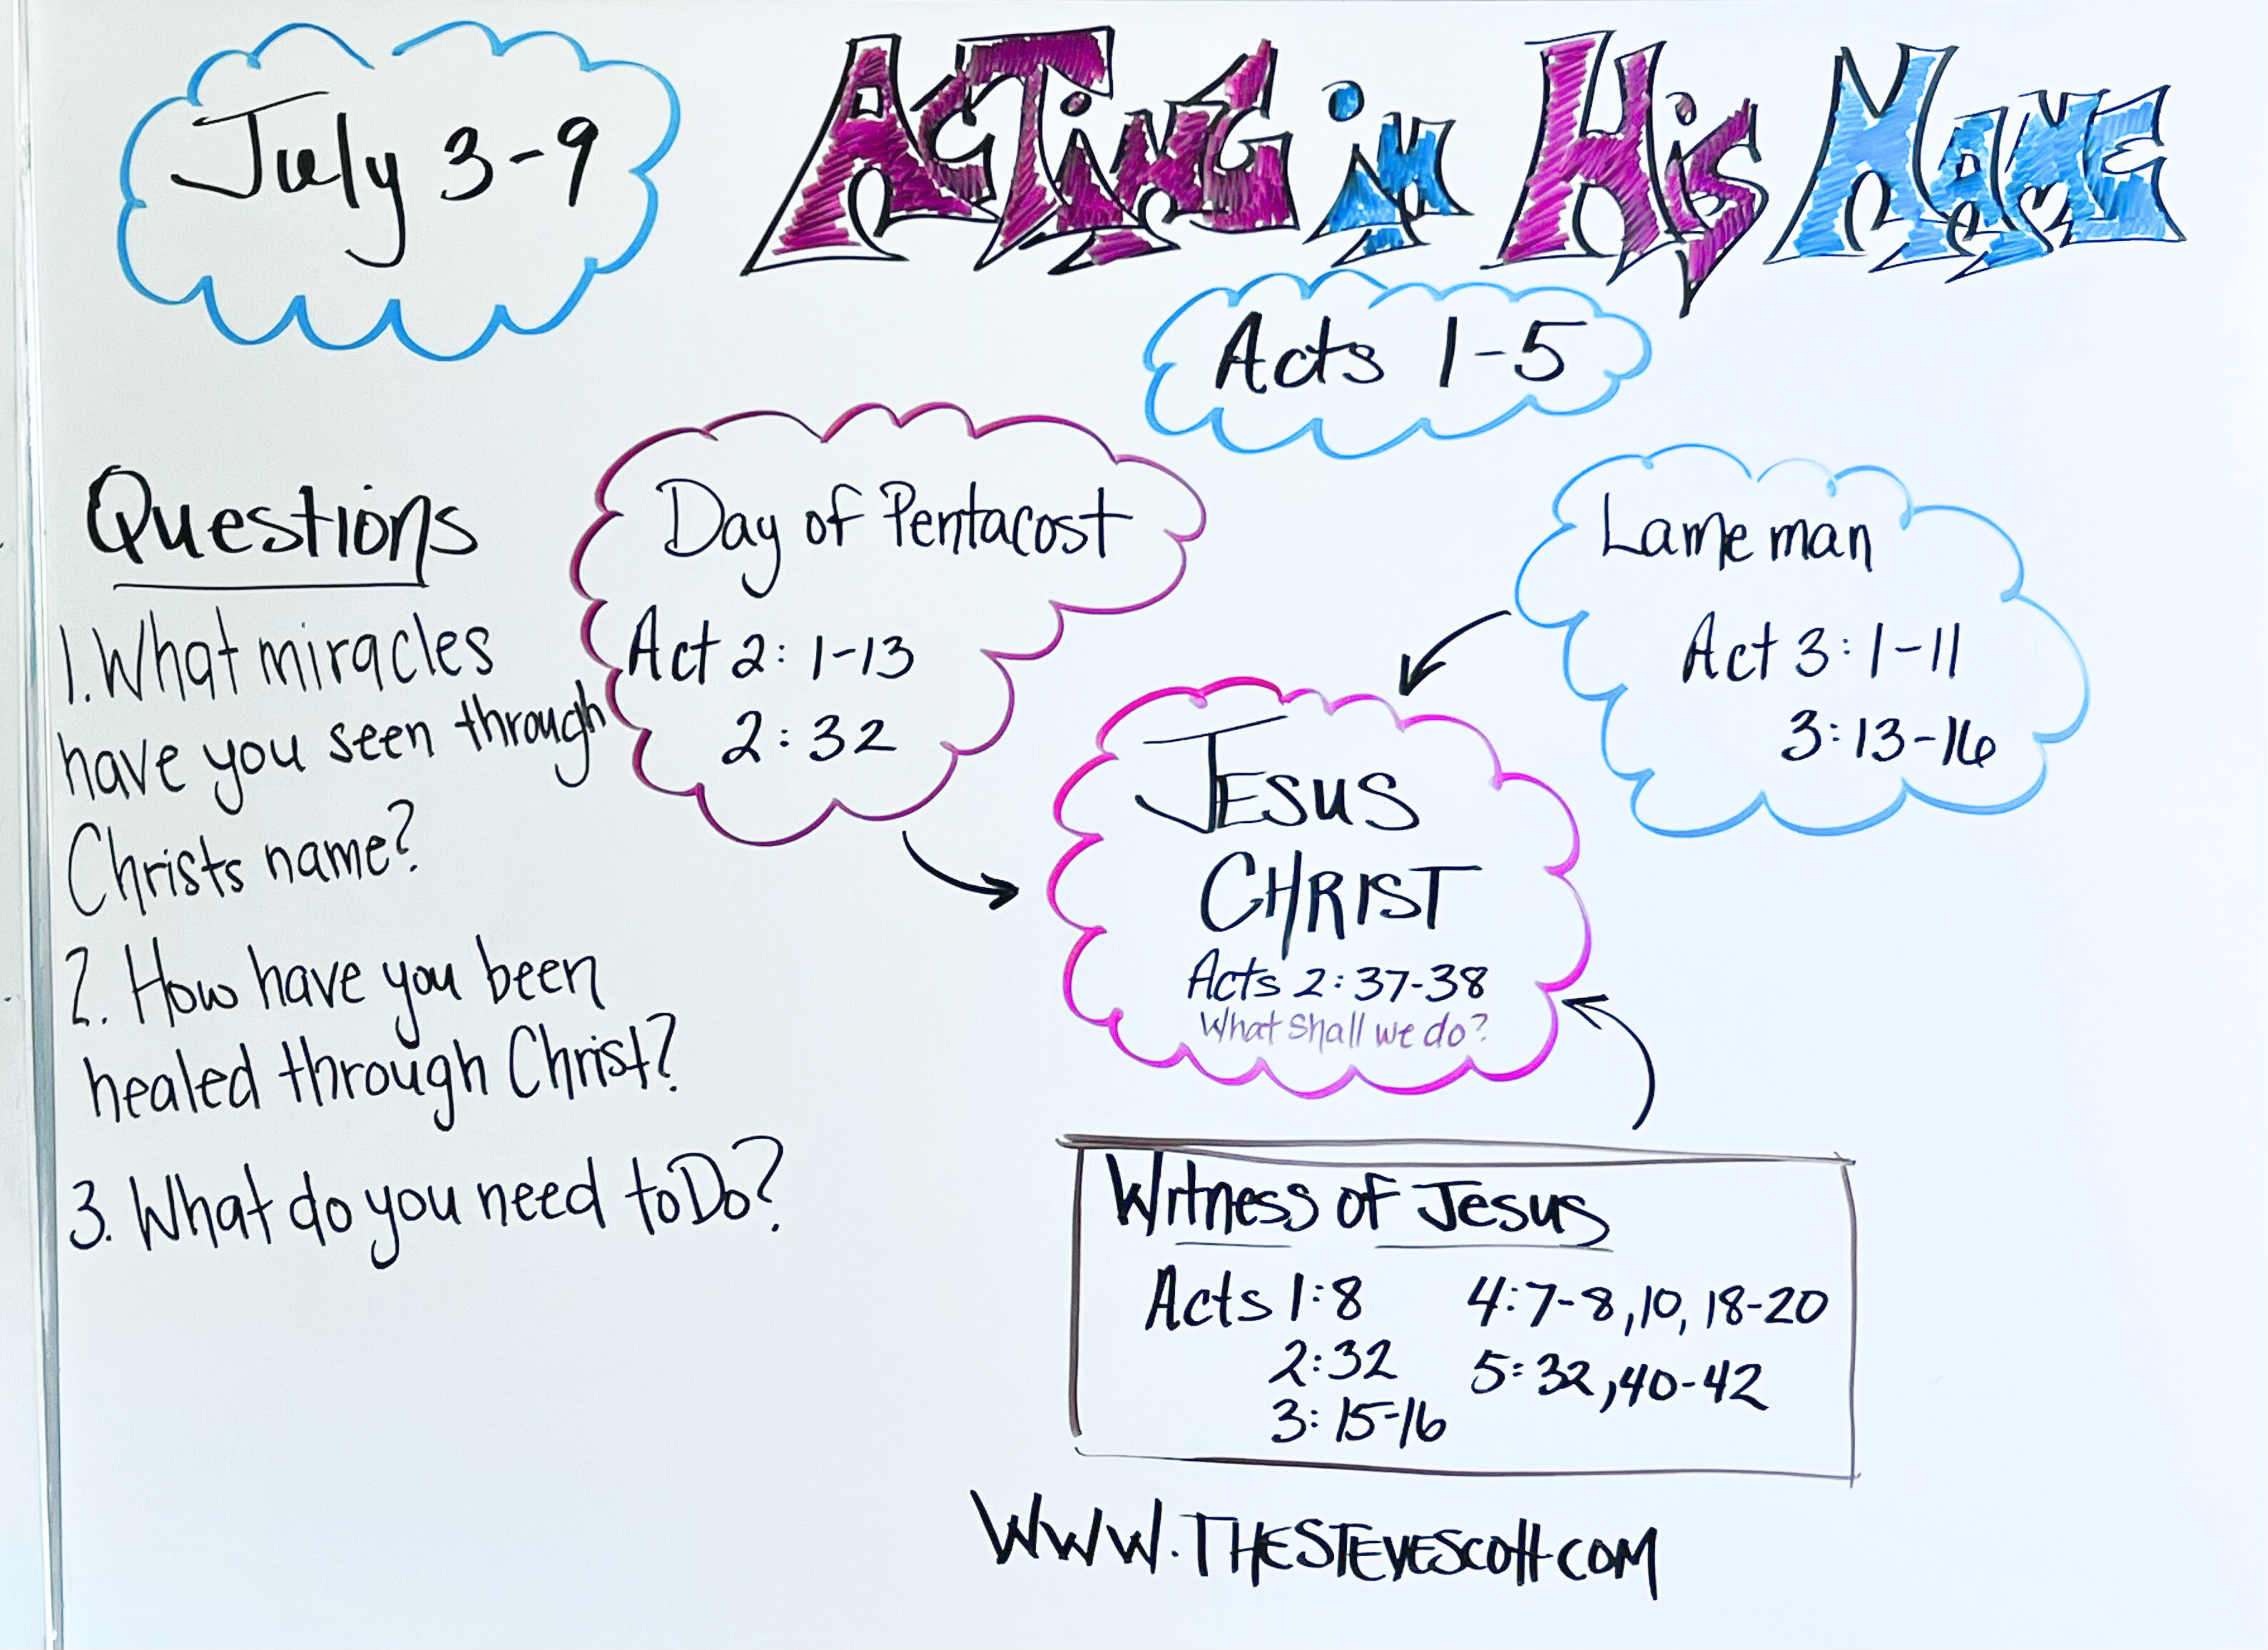 July 3-9
Acting in His Name
Acts 1-5
Questions
1. What miracles
have you seen through
Christs name?
2. How have you been
healed through Christ?
3. What do you need to Do?
Day of Pentacost
Act 2: 1-13
2:32
Lame man
Act 3:1-11
3:13-16
JESUS
CHRIST
Acts 2:37-38
What shall we do?
Witness of Jesus
Acts 1:8
2:32
3:15-16
4:7-8,10, 18-20
5:32,40-42
WWW.THESTEVESCOtt.COM